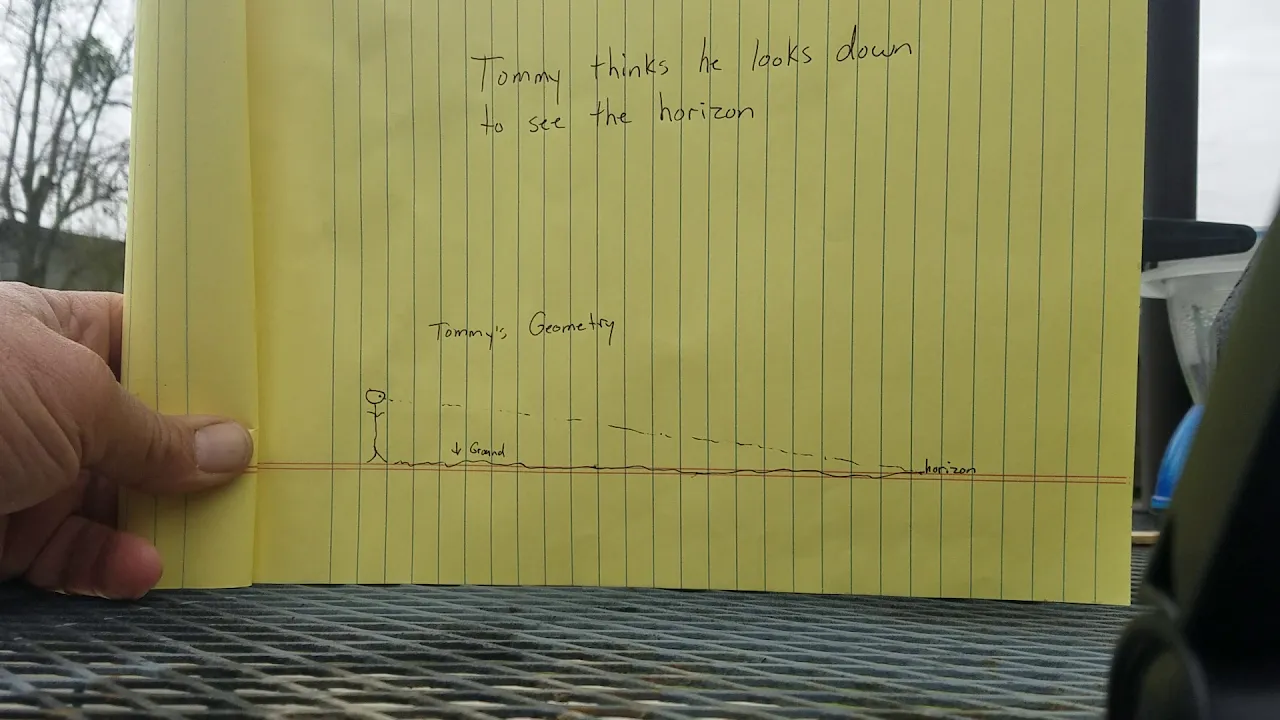 Tommy thinks he looks down
to see the horizon
Tommy's Geometry
↓ Ground
horizon